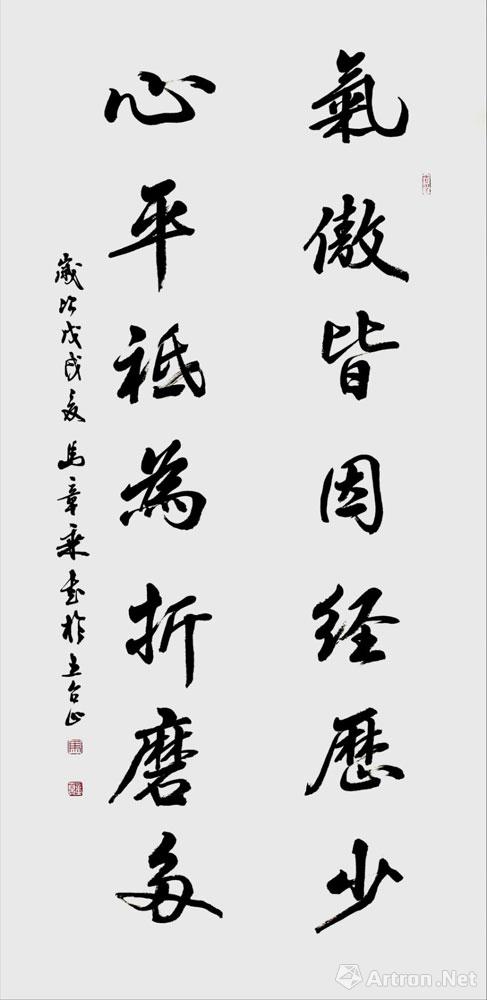 氣傲皆因经歷少
心平祗為折磨多
歲次戊戌夏馬章乘书於五台山
Artron.Net